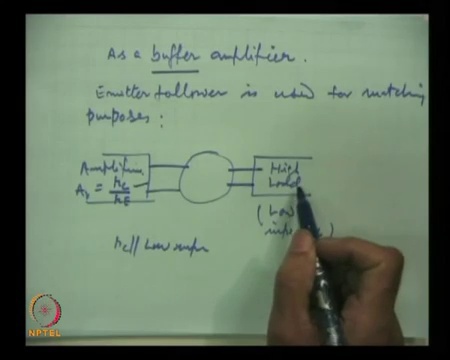 As a buffer amplifier.
Emitter follower is used for matching
purposes :
Amplifier
High
Load
(Low
RC// Low
NPTEL